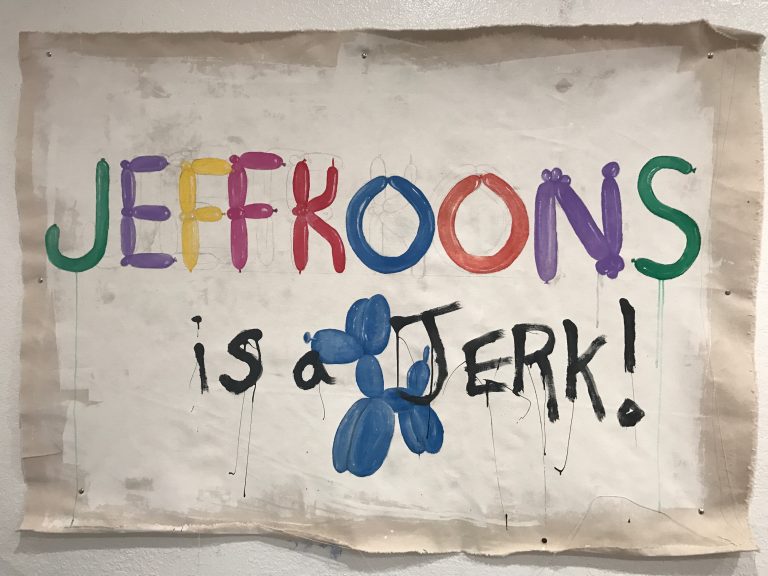 JEFF KOONS
is a JERK!